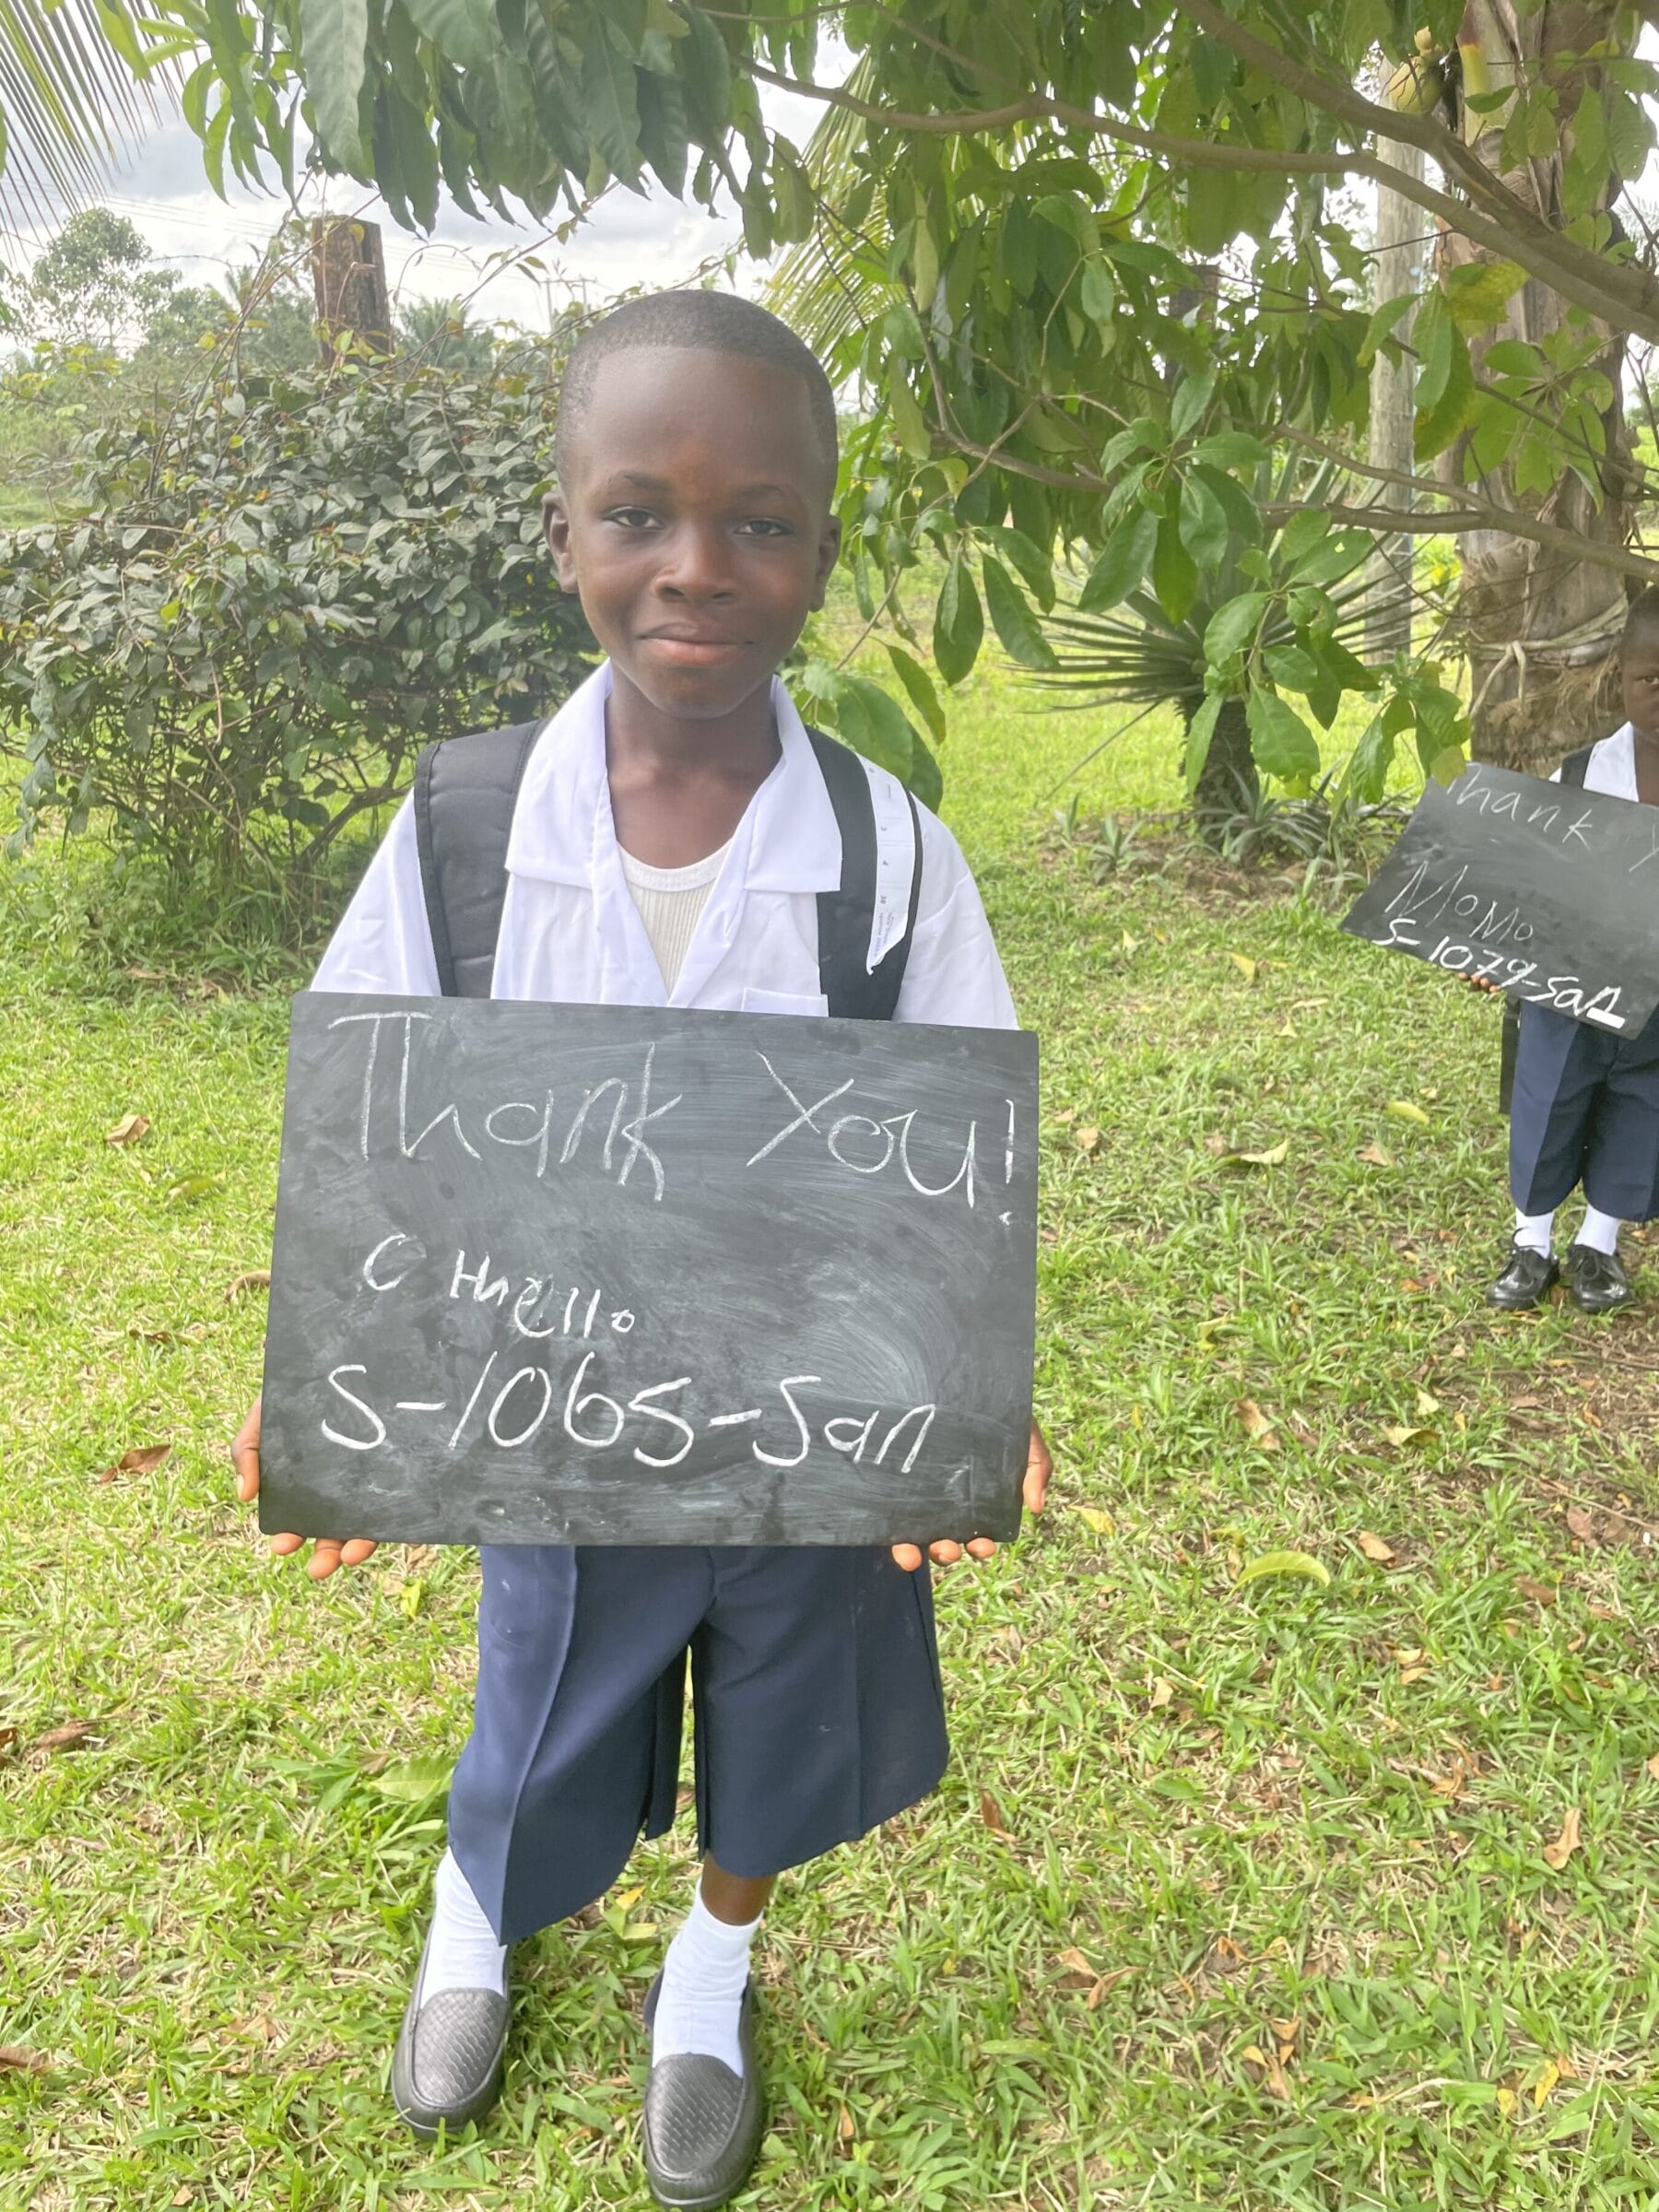 Thank You!
OHhello
S-1065-San
Thank Y
MoMo
S-1079-San